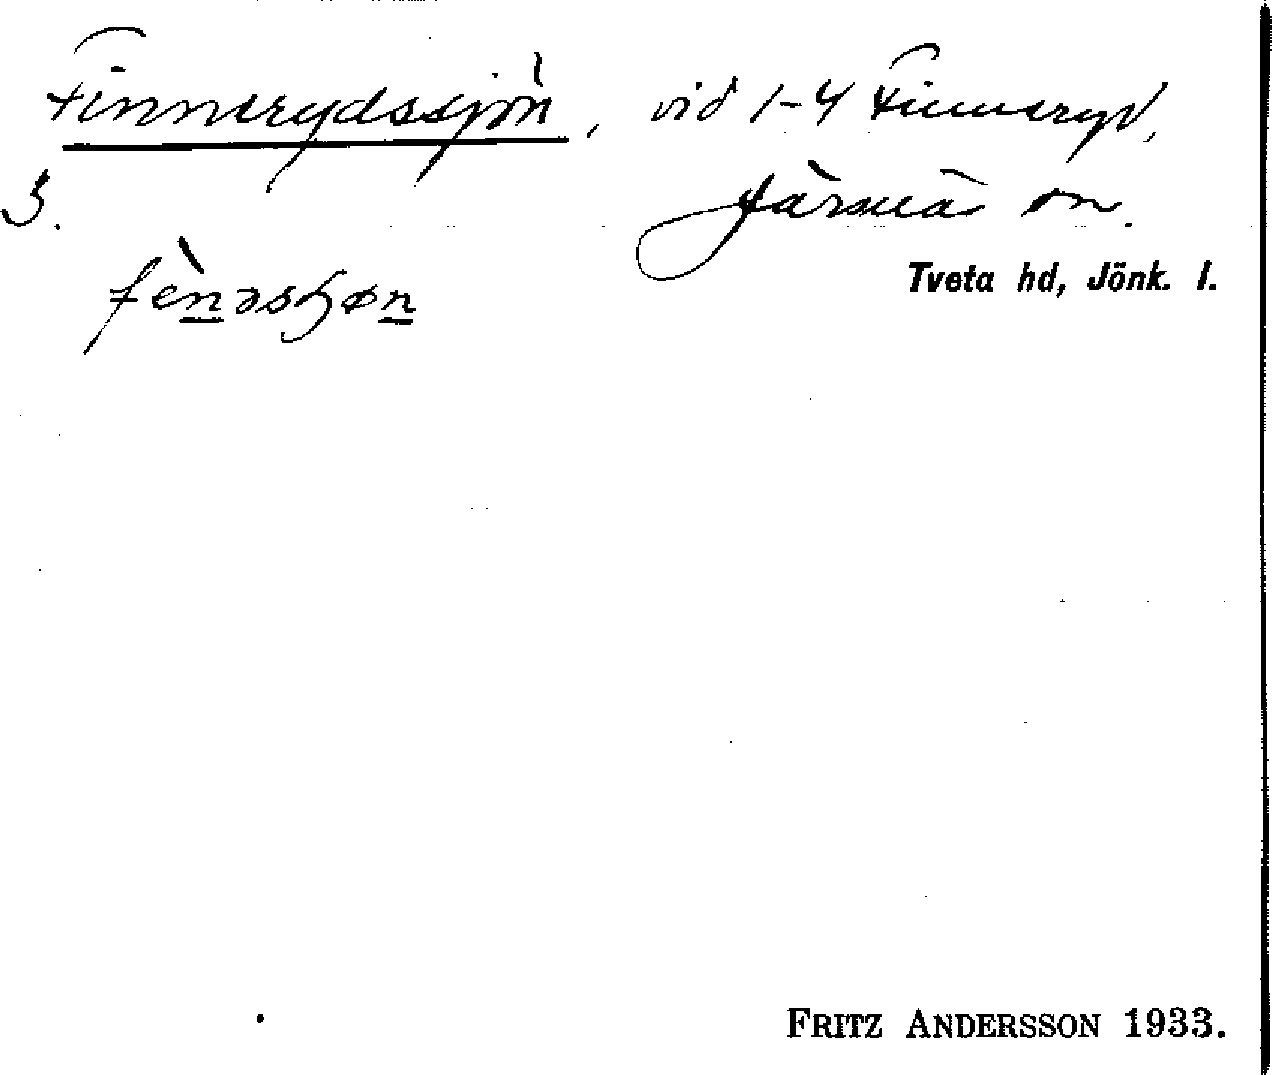 Finnerydssjön, vid 1-4 Finneryd,
3. Järsnäs sn.
Tveta hd, Jönk. l.
fènəsɧøn
FRITZ ANDERSSON 1933.